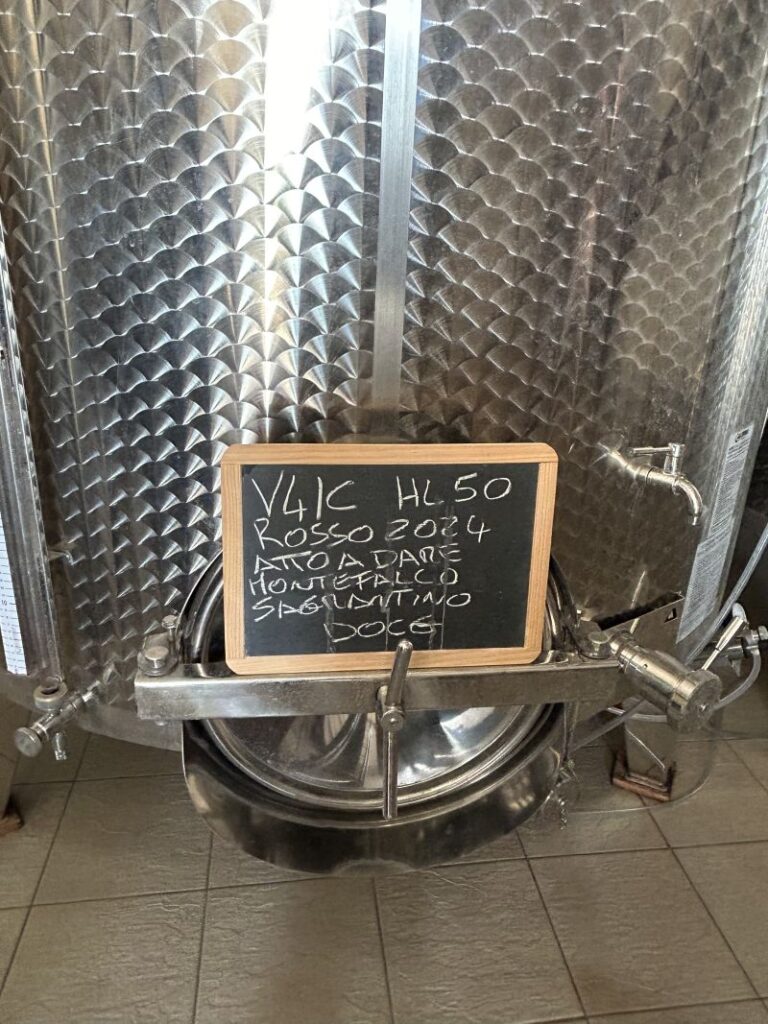 V41C HL 50
ROSSO 2024
ATTO A DARE
MONTEFALCO
SAGRANTINO
DOCG